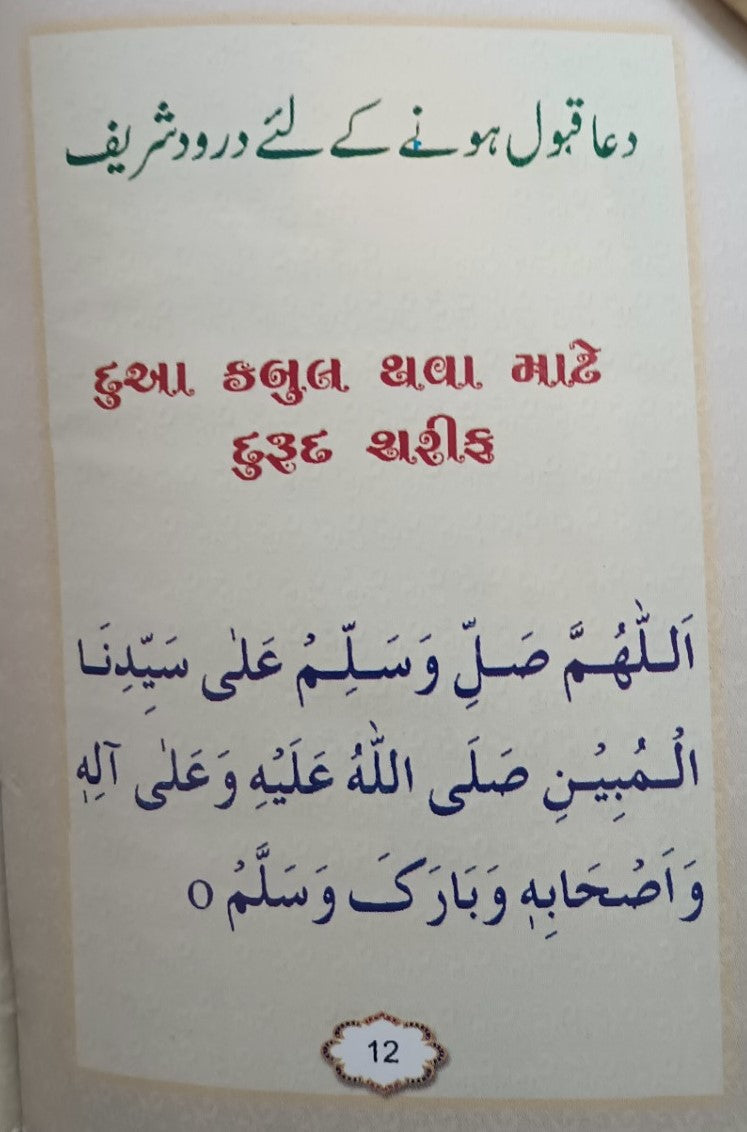 دعا قبول ہونے کے لئے درود شریف
દુઆ કબુલ થવા માટે
દુરૂદ શરીફ
اَللّٰهُمَّ صَلِّ وَسَلِّمْ عَلٰى سَيِّدِنَا
الْمُبِيْنِ صَلَى اللّٰهُ عَلَيْهِ وَعَلٰى آلِهٖ
وَاَصْحَابِهٖ وَبَارَكَ وَسَلَّمْ o
12